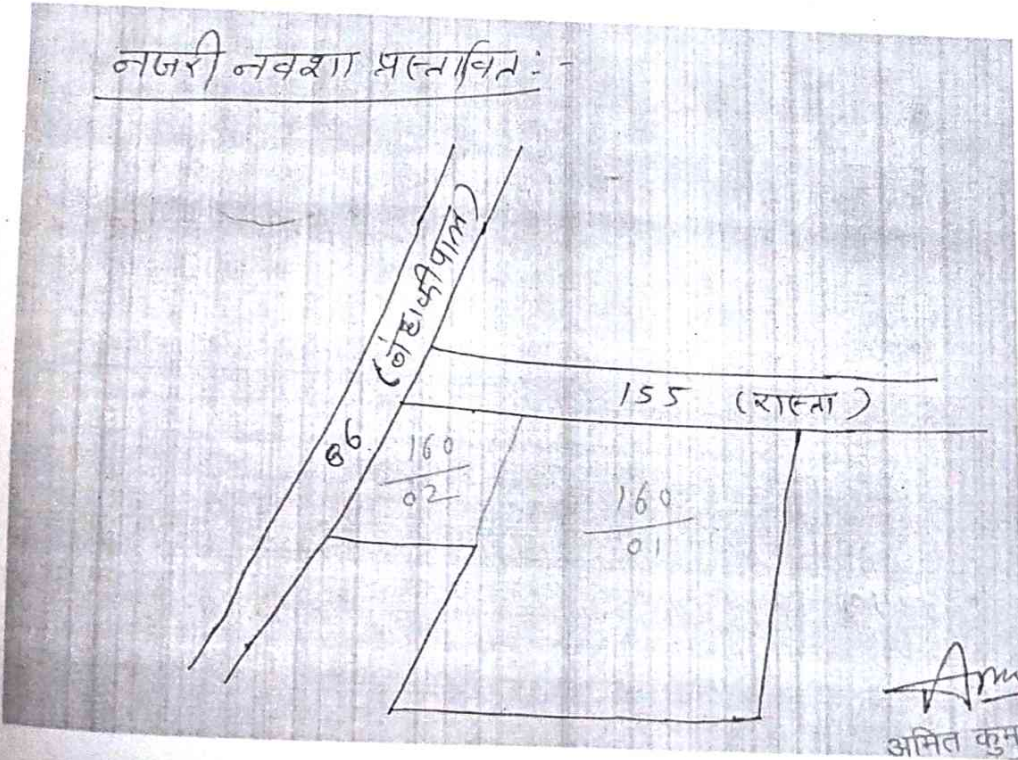 नजरी नक्शा प्रस्तावित :-
155 (रास्ता)
160
02
160
01
अमित कुम